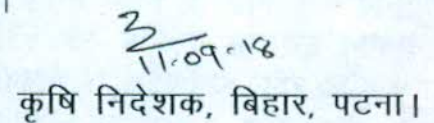 11.09.18
कृषि निदेशक, बिहार, पटना।